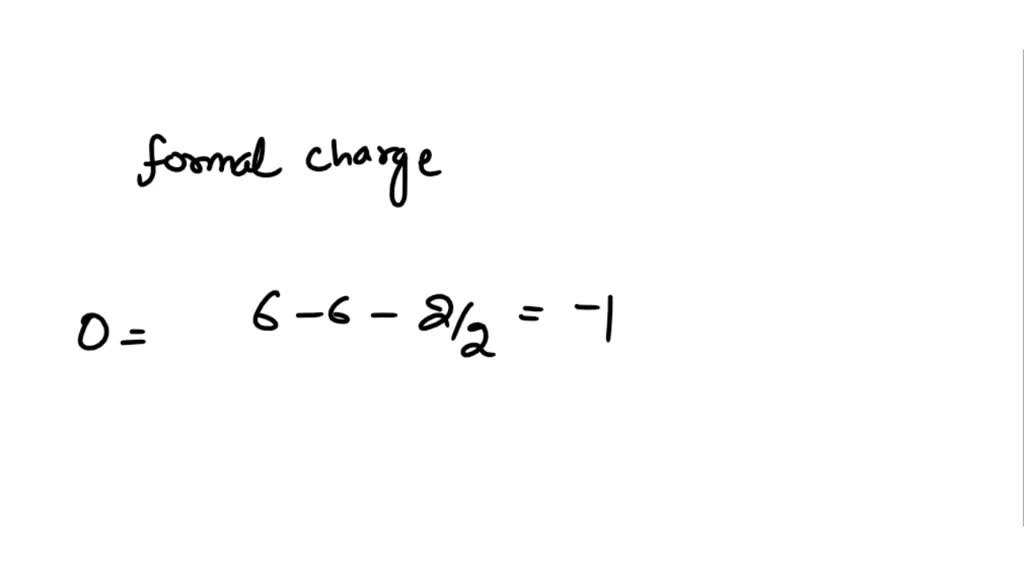 formal charge
O = 6 - 6 - 2/2 = -1